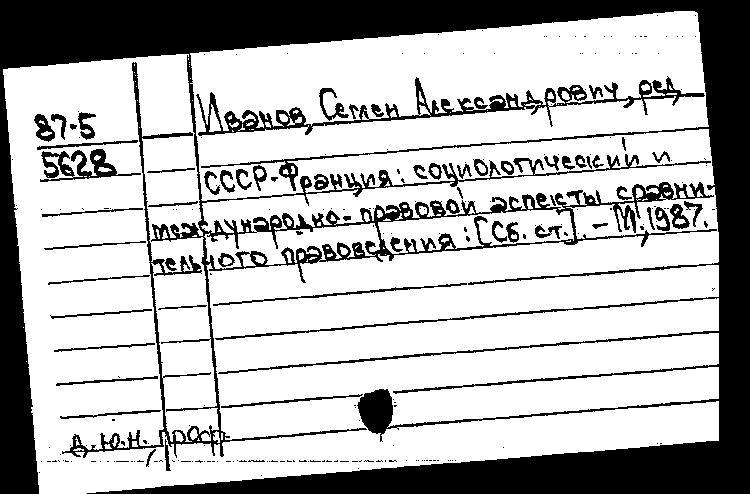 87-5
5628
Иванов, Семен Александрович, ред.
СССР-Франция: социологический и
международно-правовой аспекты сравни-
тельного правоведения : [Сб. ст.]. - М., 1987.
д.ю.н., проф.